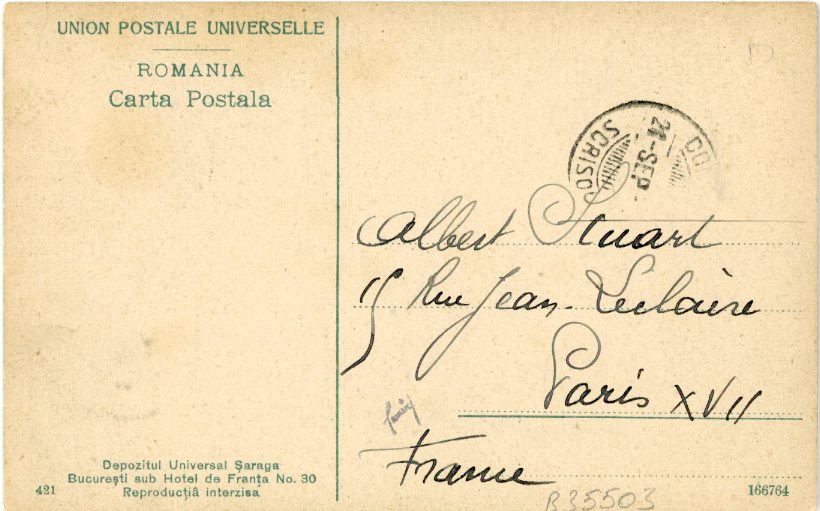 UNION POSTALE UNIVERSELLE
ROMANIA
Carta Postala
SCRISO
21-SEP
Albert Stuart
15 Rue Jean-Leclaire
Paris XVII
France
Depozitul Universal Şaraga
Bucureşti sub Hotel de Franţa No. 30
Reproducţiă interzisa
421
166764
B35503